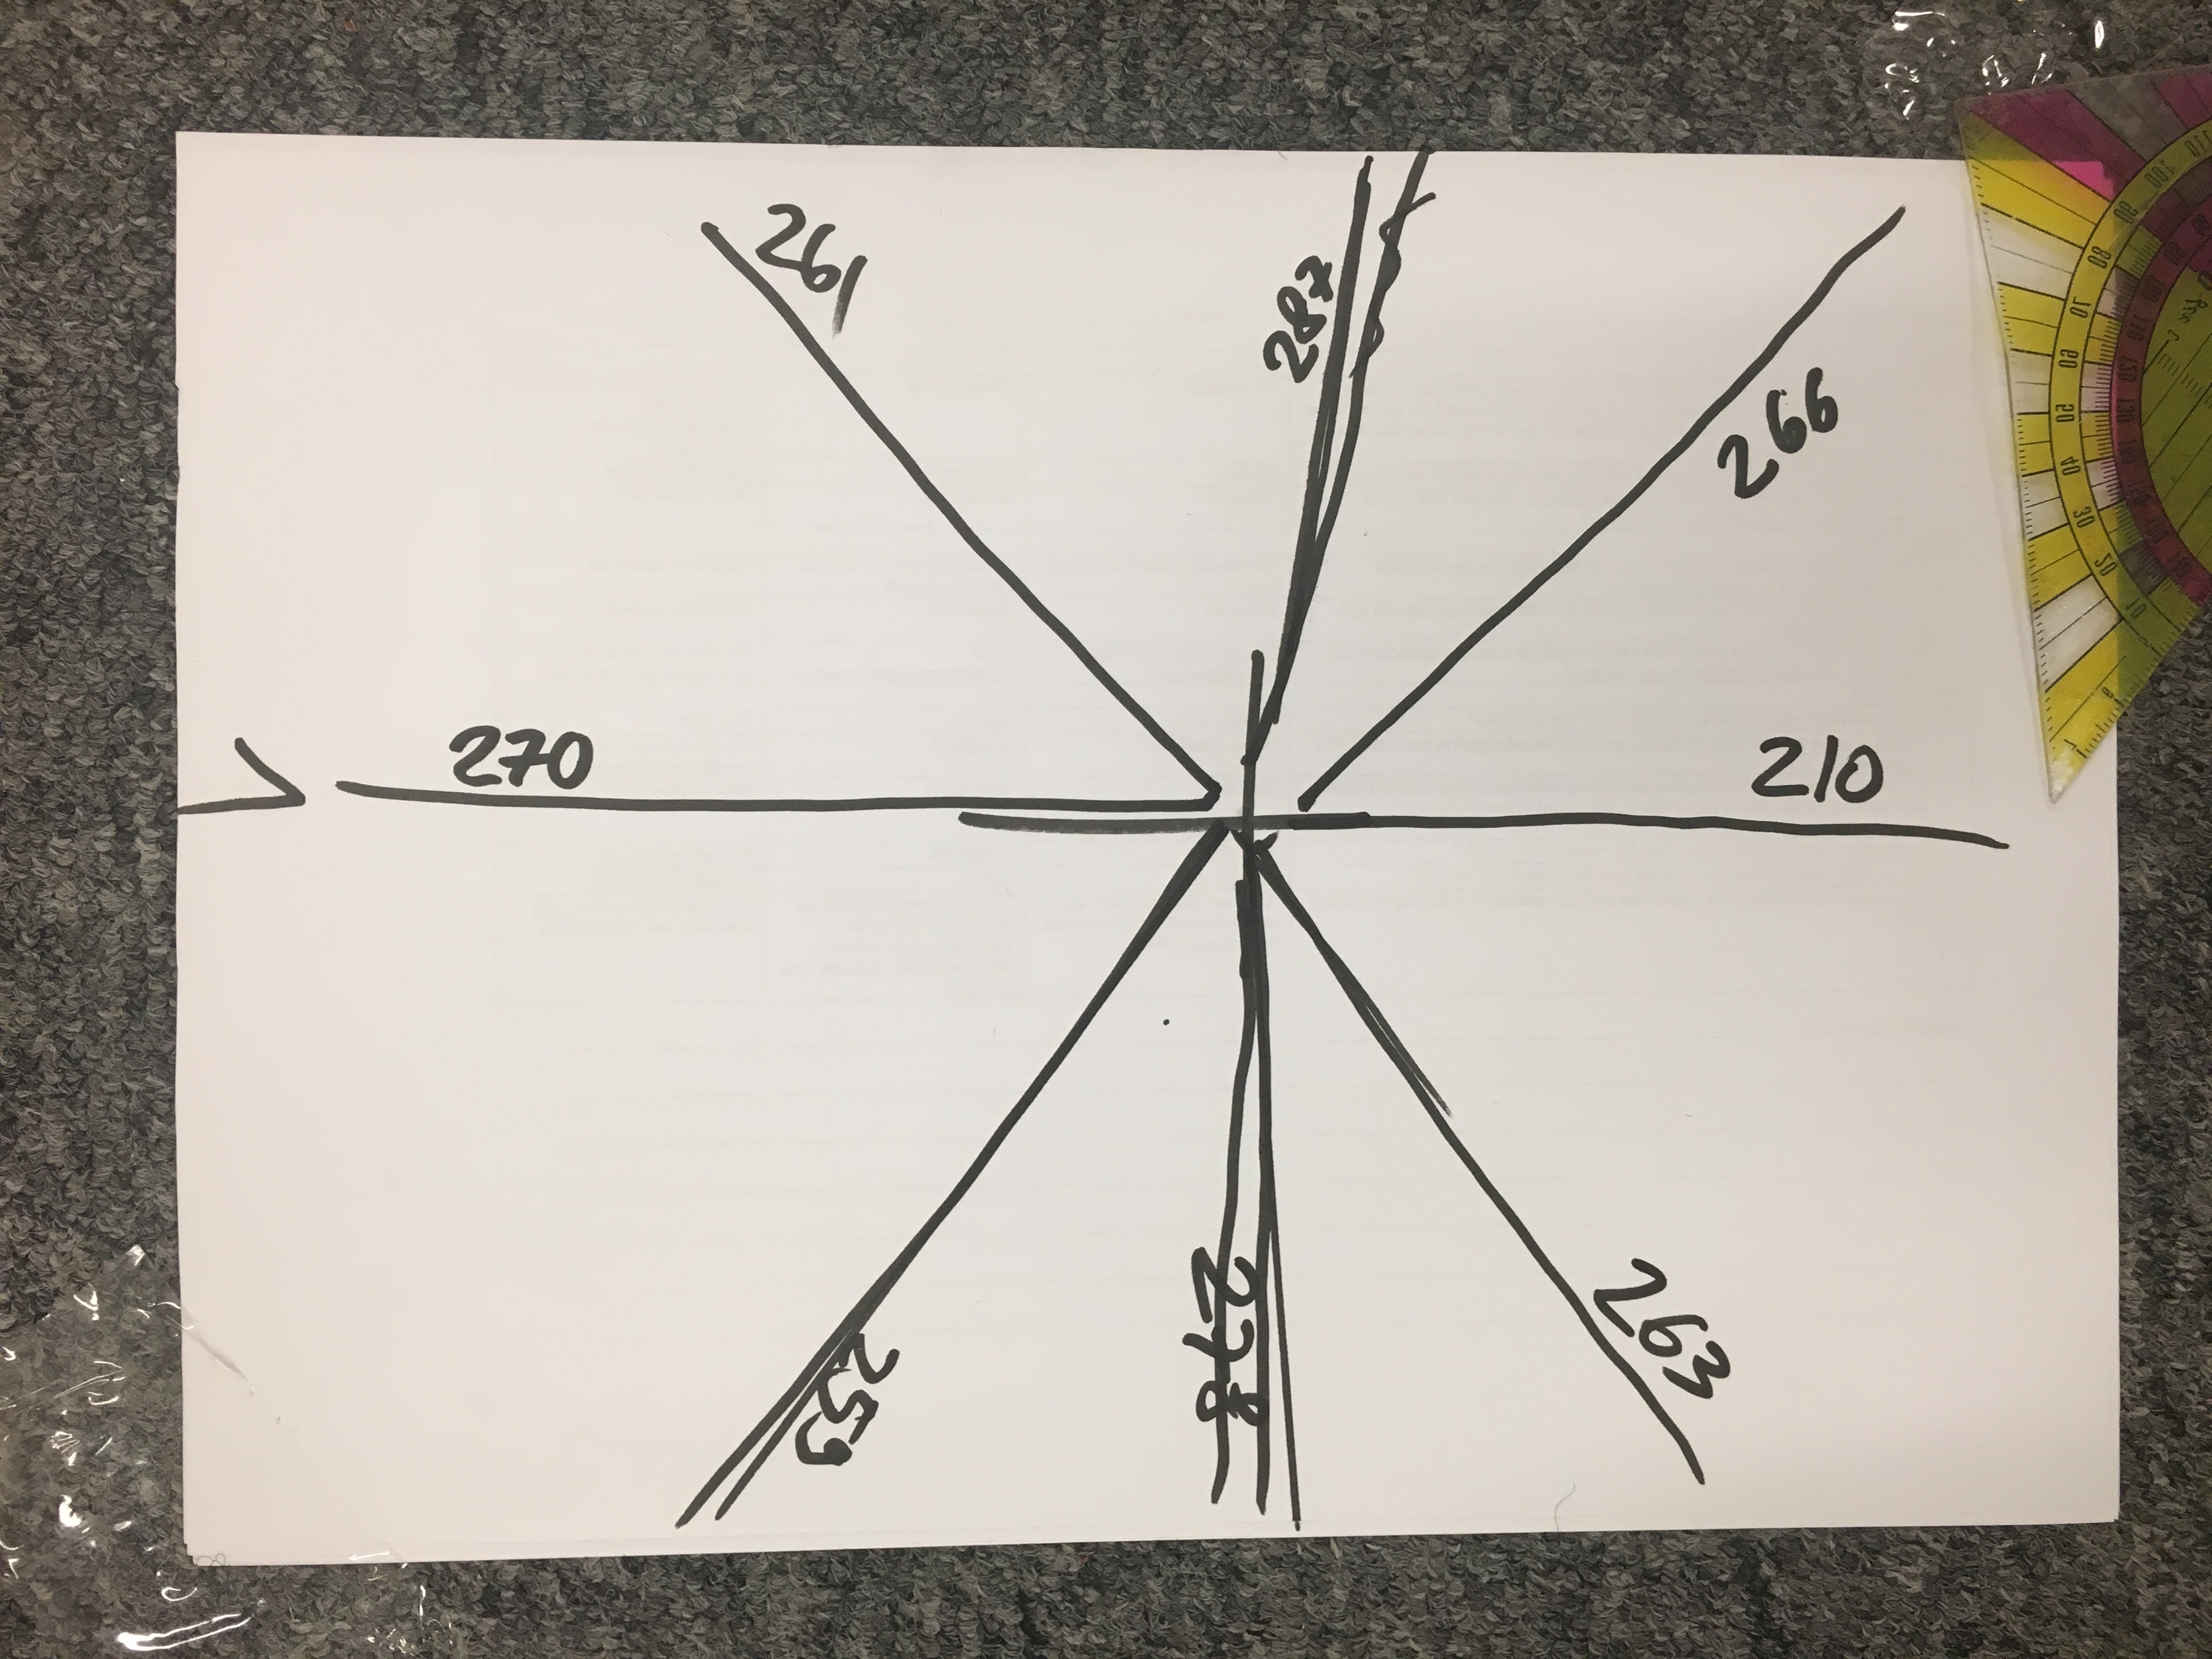 270
261
259
278
287
263
266
210
10
20
30
40
50
60
70
80
90
100
110